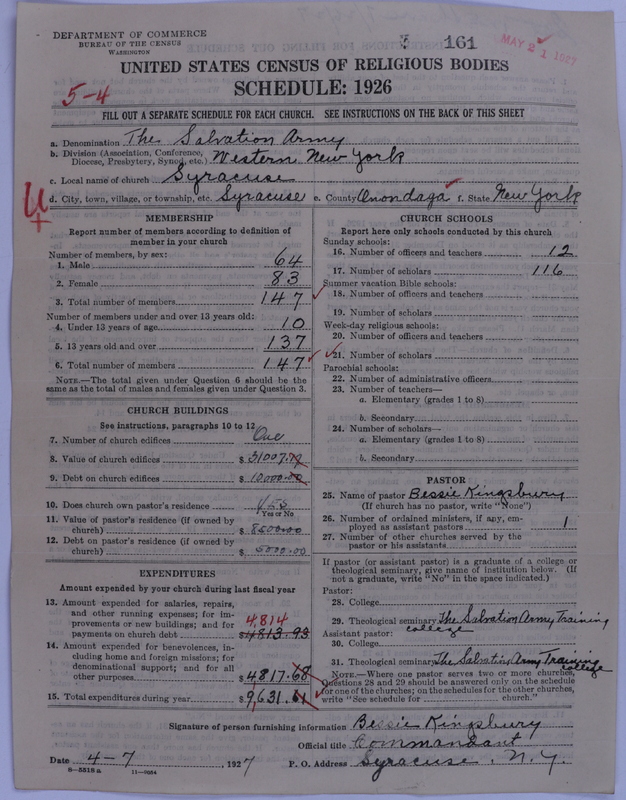 DEPARTMENT OF COMMERCE
BUREAU OF THE CENSUS
WASHINGTON
161
MAY 21 1927
UNITED STATES CENSUS OF RELIGIOUS BODIES
SCHEDULE: 1926
5-4
FILL OUT A SEPARATE SCHEDULE FOR EACH CHURCH. SEE INSTRUCTIONS ON THE BACK OF THIS SHEET
a. Denomination The Salvation Army
b. Division (Association, Conference, Diocese, Presbytery, Synod, etc.) Western New York
c. Local name of church Syracuse
U
d. City, town, village, or township, etc. Syracuse e. County Onondaga f. State New York
MEMBERSHIP
Report number of members according to definition of
member in your church
Number of members, by sex:
1. Male 64
2. Female 83
3. Total number of members 147
Number of members under and over 13 years old:
4. Under 13 years of age 10
5. 13 years old and over 137
6. Total number of members 147
NOTE.—The total given under Question 6 should be the
same as the total of males and females given under Question 3.
CHURCH BUILDINGS
See instructions, paragraphs 10 to 12
7. Number of church edifices One
8. Value of church edifices $ 31007.
9. Debt on church edifices $ 10000.00
10. Does church own pastor's residence Yes
Yes or No
11. Value of pastor's residence (if owned by
church) $ 8500.00
12. Debt on pastor's residence (if owned by
church) $ 5000.00
EXPENDITURES
Amount expended by your church during last fiscal year
13. Amount expended for salaries, repairs,
and other running expenses; for im-
provements or new buildings; and for
payments on church debt $ 4813.93
4,814
14. Amount expended for benevolences, in-
cluding home and foreign missions; for
denominational support; and for all
other purposes $ 4817.68
15. Total expenditures during year $ 9,631.61
CHURCH SCHOOLS
Report here only schools conducted by this church
Sunday schools:
16. Number of officers and teachers 12
17. Number of scholars 116
Summer vacation Bible schools:
18. Number of officers and teachers
19. Number of scholars
Week-day religious schools:
20. Number of officers and teachers
21. Number of scholars
Parochial schools:
22. Number of administrative officers
23. Number of teachers—
a. Elementary (grades 1 to 8)
b. Secondary
24. Number of scholars—
a. Elementary (grades 1 to 8)
b. Secondary
PASTOR
25. Name of pastor Bessie Kingsbury
(If church has no pastor, write "None")
26. Number of ordained ministers, if any, em-
ployed as assistant pastors 1
27. Number of other churches served by the
pastor or his assistants
If pastor (or assistant pastor) is a graduate of a college or
theological seminary, give name of institution below. (If
not a graduate, write "No" in the space indicated.)
Pastor:
28. College
29. Theological seminary The Salvation Army Training college
Assistant pastor:
30. College
31. Theological seminary The Salvation Army Training College
NOTE.—Where one pastor serves two or more churches,
Questions 28 and 29 should be answered only on the schedule
for one of the churches; on the schedules for the other churches,
write "See schedule for church."
Signature of person furnishing information Bessie Kingsbury
Official title Commandant
Date 4-7, 1927 P. O. Address Syracuse, N.Y.
8-5518 a 11-9064